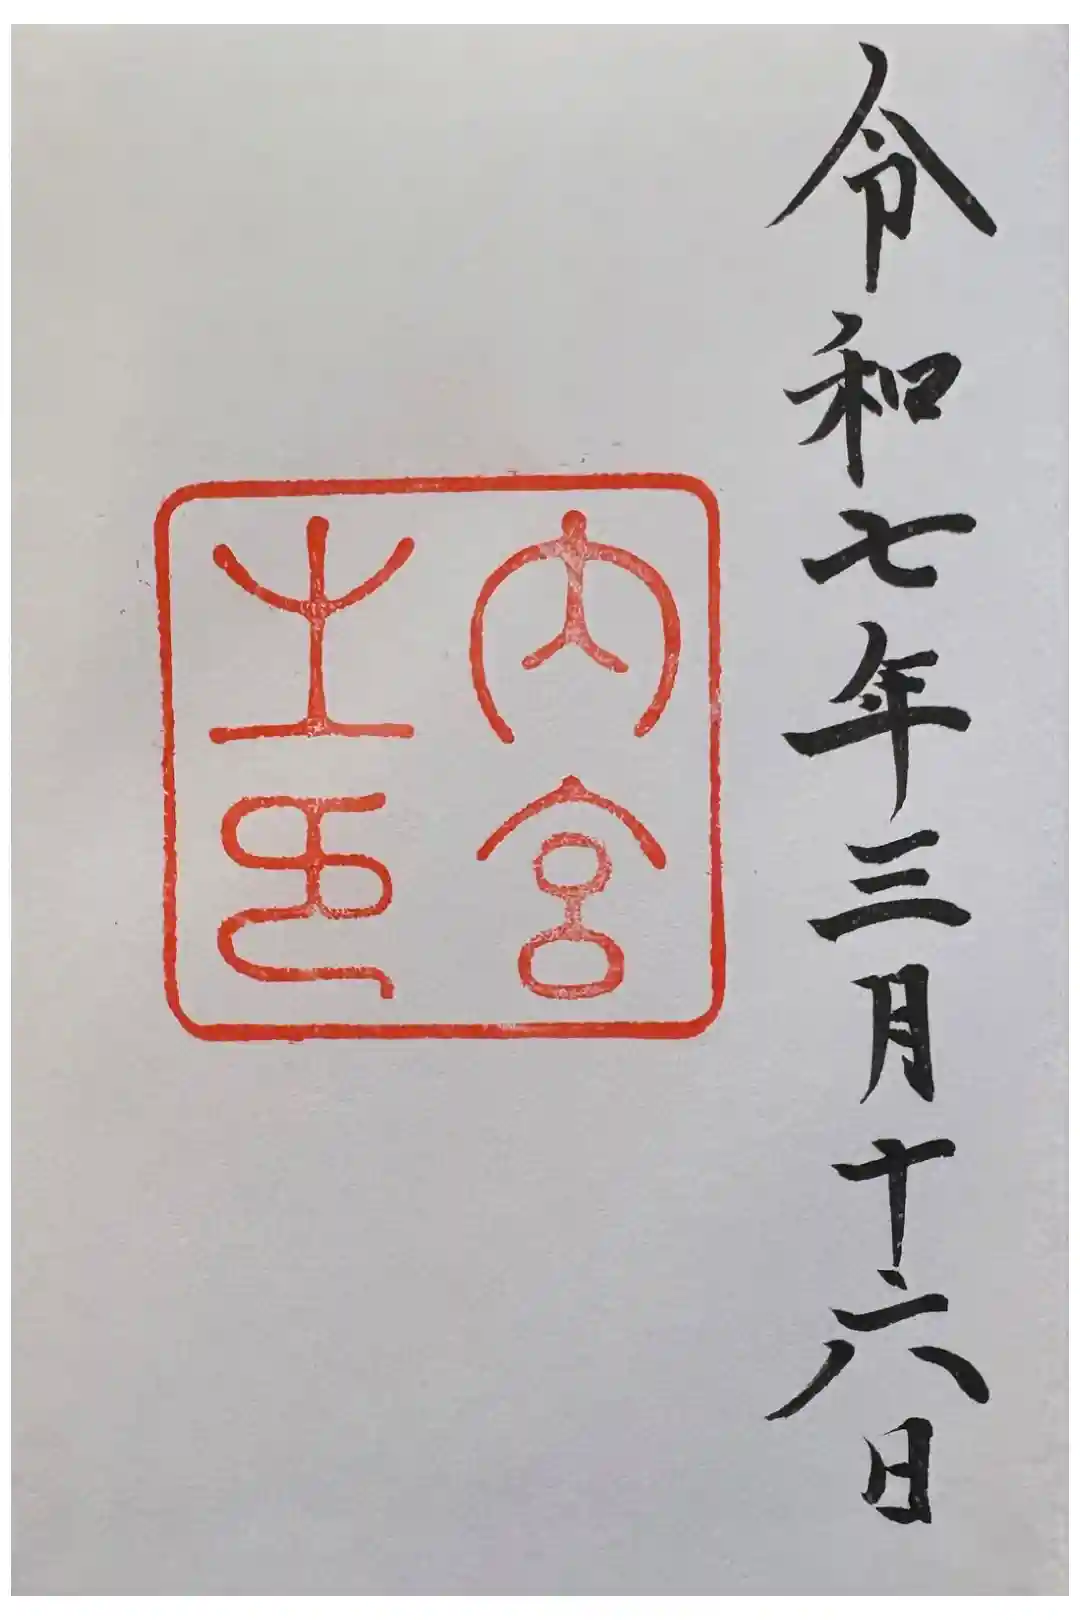 令和七年三月十六日
内宮
之印